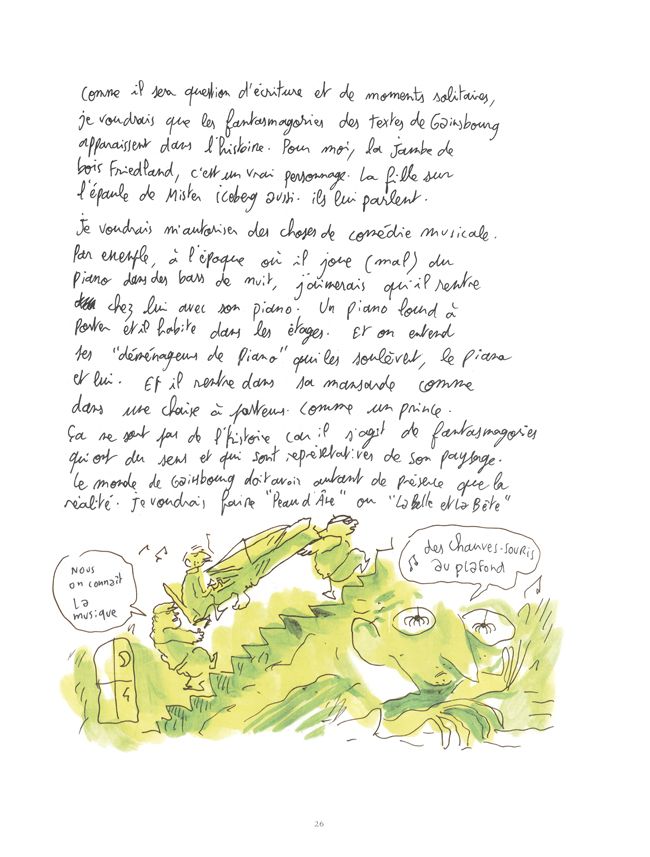 Comme il sera question d'écriture et de moments solitaires,
je voudrais que les fantasmagories des textes de Gainsbourg
apparaissent dans l'histoire. Pour moi, la jambe de
bois Friedland, c'est un vrai personnage. La fille sur
l'épaule de Mister iceberg aussi. ils lui parlent.
Je voudrais m'autoriser des choses de comédie musicale.
Par exemple, à l'époque où il joue (mal) du
piano dans des bars de nuit, j'aimerais qu'il rentre
chez lui avec son piano. Un piano lourd à
porter et il habite dans les étages. Et on entend
ses "déménageurs de piano" qui les soulèvent, le piano
et lui. Et il rentre dans sa mansarde comme
dans une chaise à porteurs. Comme un prince.
Ça ne sort pas de l'histoire car il s'agit de fantasmagories
qui ont du sens et qui sont représentatives de son paysage.
Le monde de Gainsbourg doit avoir autant de présence que la
réalité. Je voudrais faire "Peau d'Âne" ou "La Belle et La Bête"
Nous
on connaît
La
musique
des chauves-souris
au plafond
26